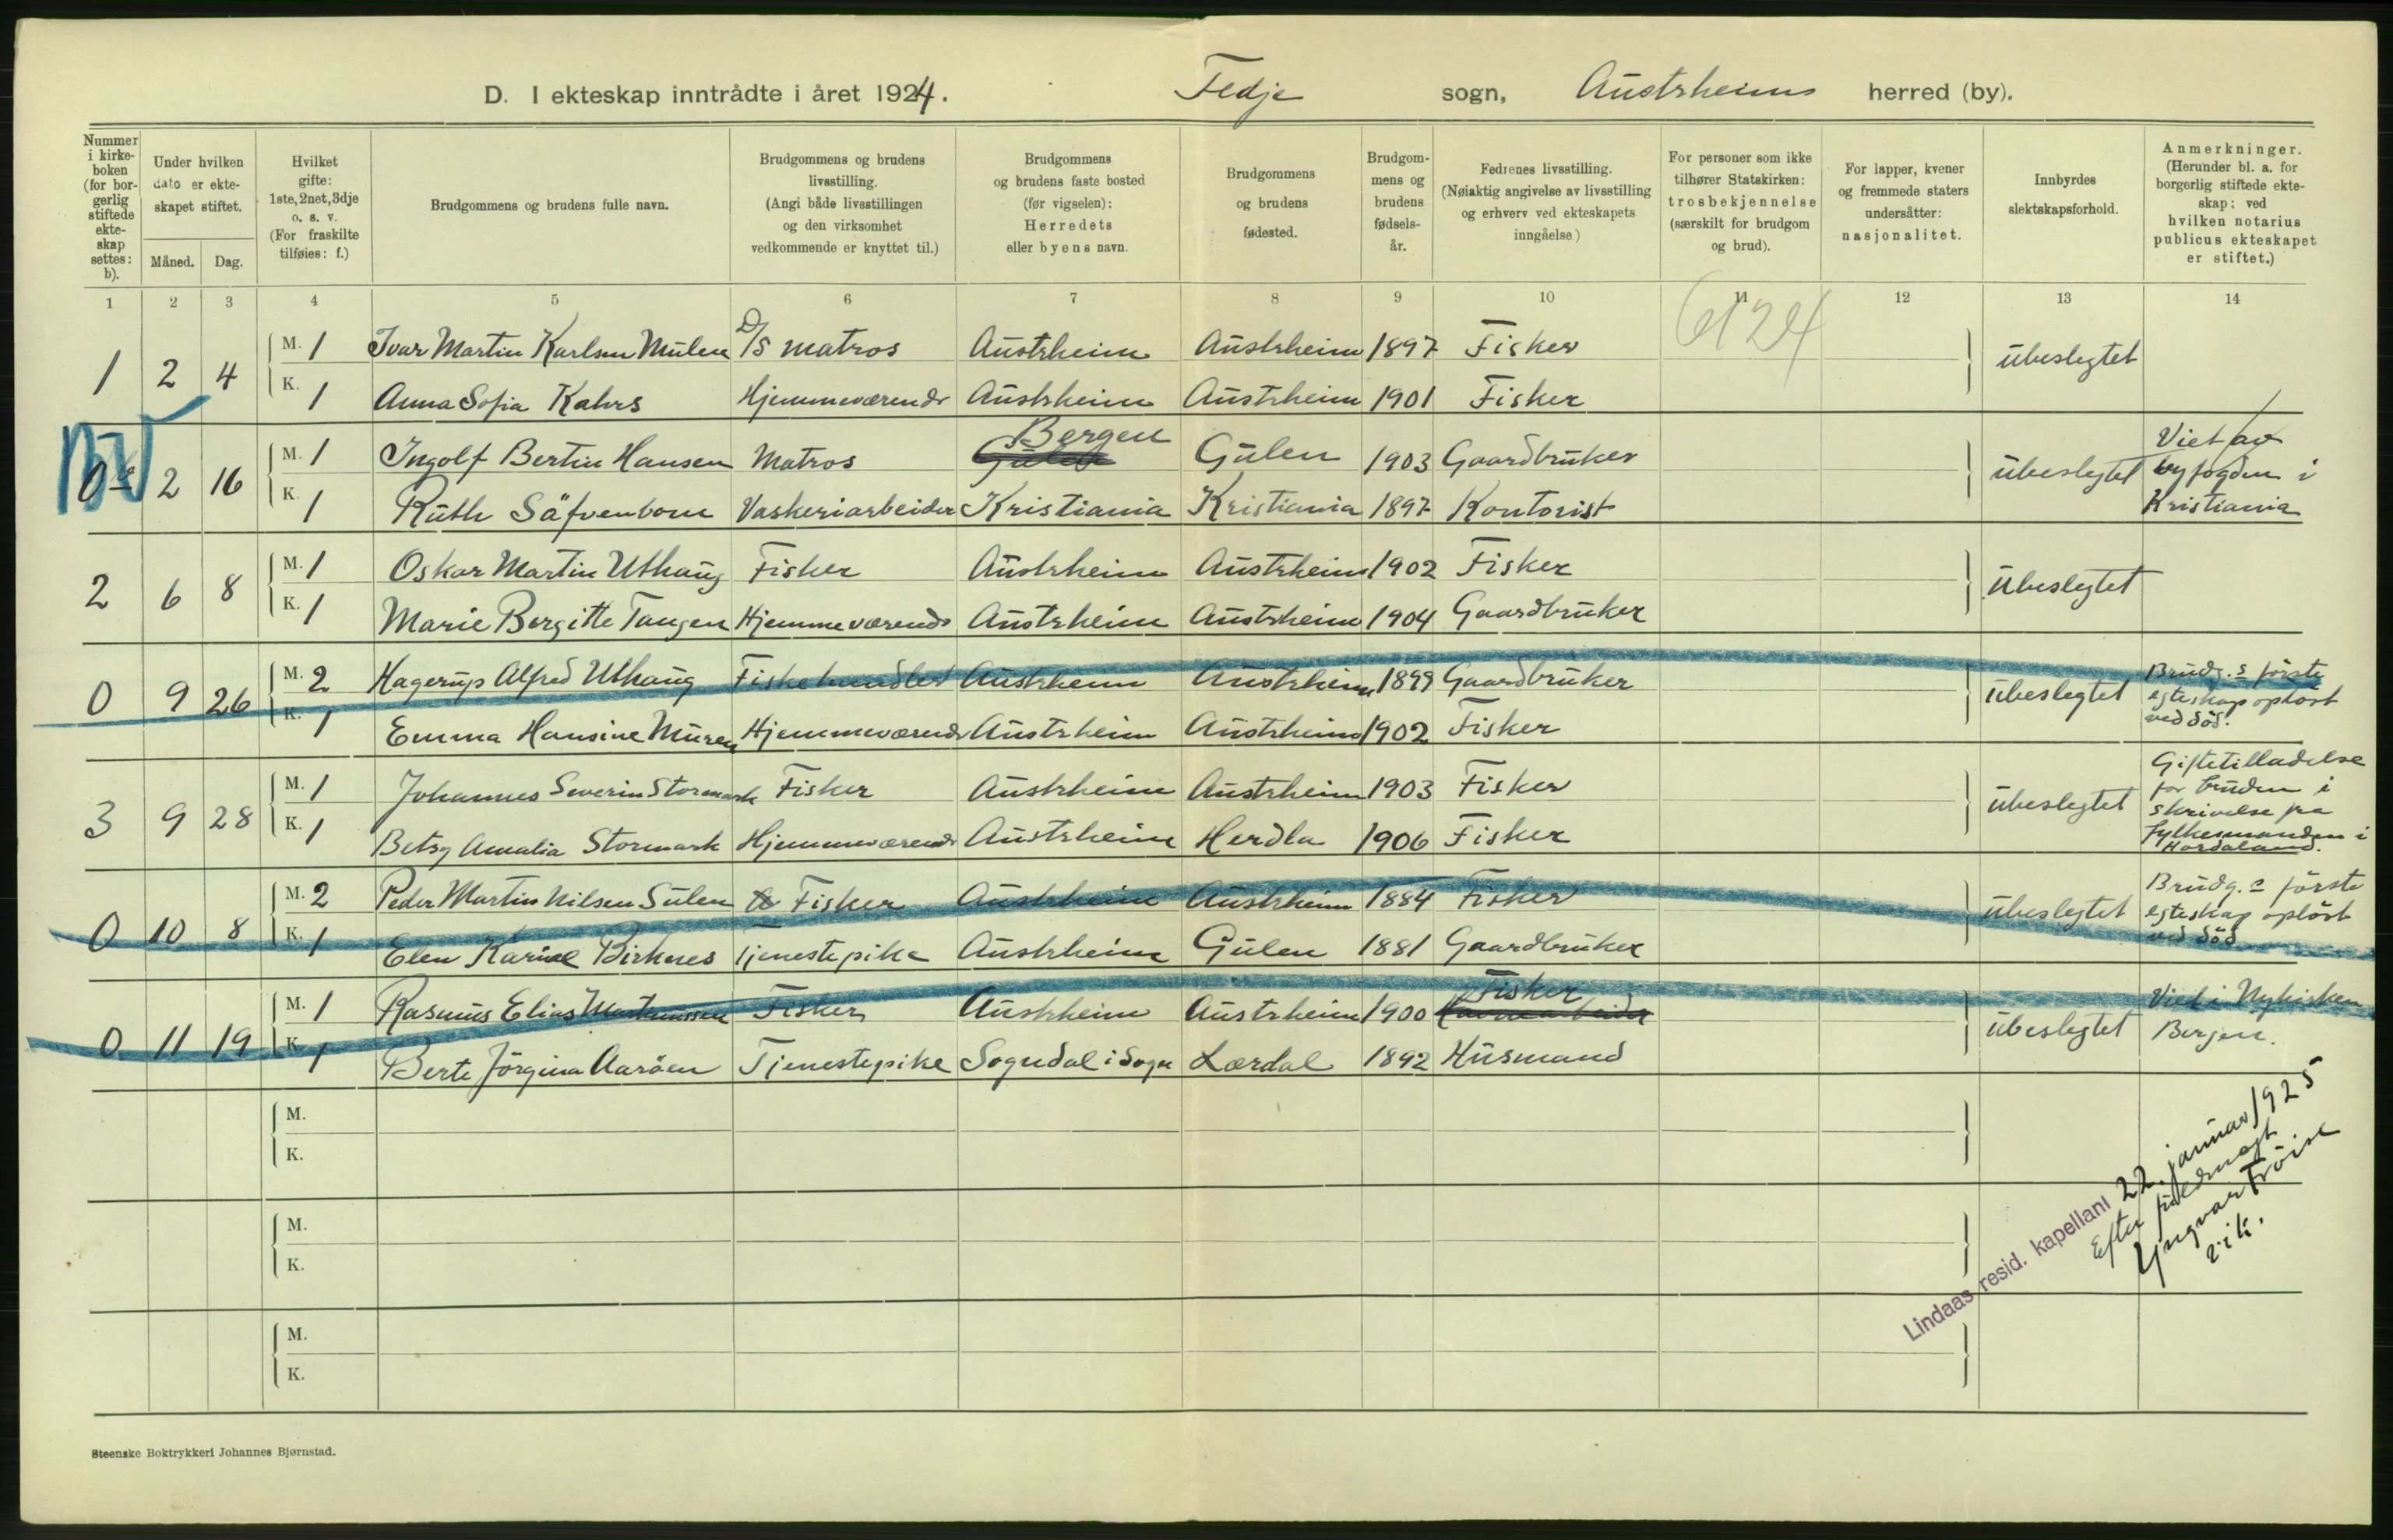 D. I ekteskap inntrådte i året 1924. Fedje sogn, Austrheim herred (by).
Nummer i kirkeboken (for borgerlig stiftede ekteskap settes: b).
Under hvilken dato er ekteskapet stiftet.
Måned. Dag.
Hvilket gifte: 1ste, 2net, 3dje o. s. v. (For fraskilte tilføies: f.)
Brudgommens og brudens fulle navn.
Brudgommens og brudens livsstilling. (Angi både livsstillingen og den virksomhet vedkommende er knyttet til.)
Brudgommens og brudens faste bosted (før vigselen): Herredets eller byens navn.
Brudgommens og brudens fødested.
Brudgommens og brudens fødselsår.
Fedrenes livsstilling. (Nøiaktig angivelse av livsstilling og erhverv ved ekteskapets inngåelse)
For personer som ikke tilhører Statskirken: trosbekjennelse (særskilt for brudgom og brud).
For lapper, kvener og fremmede staters undersåtter: nasjonalitet.
Innbyrdes slektskapsforhold.
Anmerkninger. (Herunder bl. a. for borgerlig stiftede ekteskap: ved hvilken notarius publicus ekteskapet er stiftet.)
1 2 3 4 5 6 7 8 9 10 11 12 13 14
6124
1 2 4 M. 1 Ivar Martin Karlsen Mulen D/S matros Austrheim Austrheim 1897 Fisker ubeslegtet
K. 1 Anna Sofia Kahrs Hjemmeværende Austrheim Austrheim 1901 Fisker
0 2 16 M. 1 Ingolf Bertin Hansen Matros Bergen Gulen Gulen 1903 Gaardbruker ubeslegtet Viet av byfogden i Kristiania
K. 1 Ruth Säfvenbom Vaskeriarbeider Kristiania Kristiania 1897 Kontorist
2 6 8 M. 1 Oskar Martin Uthaug Fisker Austrheim Austrheim 1902 Fisker ubeslegtet
K. 1 Marie Bergitte Tangen Hjemmeværende Austrheim Austrheim 1904 Gaardbruker
0 9 26 M. 2 Hagerup Alfred Uthaug Fiskehandler Austrheim Austrheim 1899 Gaardbruker ubeslegtet Brudg.s første egteskap opløst ved død.
K. 1 Emma Hansine Muren Hjemmeværende Austrheim Austrheim 1902 Fisker
3 9 28 M. 1 Johannes Severin Stormark Fisker Austrheim Austrheim 1903 Fisker ubeslegtet Giftetilladelse for bruden i skrivelse fra fylkesmanden i Hordaland.
K. 1 Betsy Amalia Stormark Hjemmeværende Austrheim Herdla 1906 Fisker
0 10 8 M. 2 Peder Martin Nilsen Sulen Fisker Austrheim Austrheim 1884 Fisker ubeslegtet Brudg.s første egteskap opløst ved død
K. 1 Elen Karine Birknes Tjenestepike Austrheim Gulen 1881 Gaardbruker
0 11 19 M. 1 Rasmus Elias Martinussen Fisker Austrheim Austrheim 1900 Fisker ubeslegtet Viet i Nykirken Bergen.
K. 1 Berte Jörgina Aaröen Tjenestepike Sogndal i Sogn Lærdal 1892 Husmand
M.
K.
M.
K.
M.
K.
Lindaas resid. kapellani 22. januar 1925
Efter fuldmagt
Yngvar Tröise
vik.
Steenske Boktrykkeri Johannes Bjørnstad.